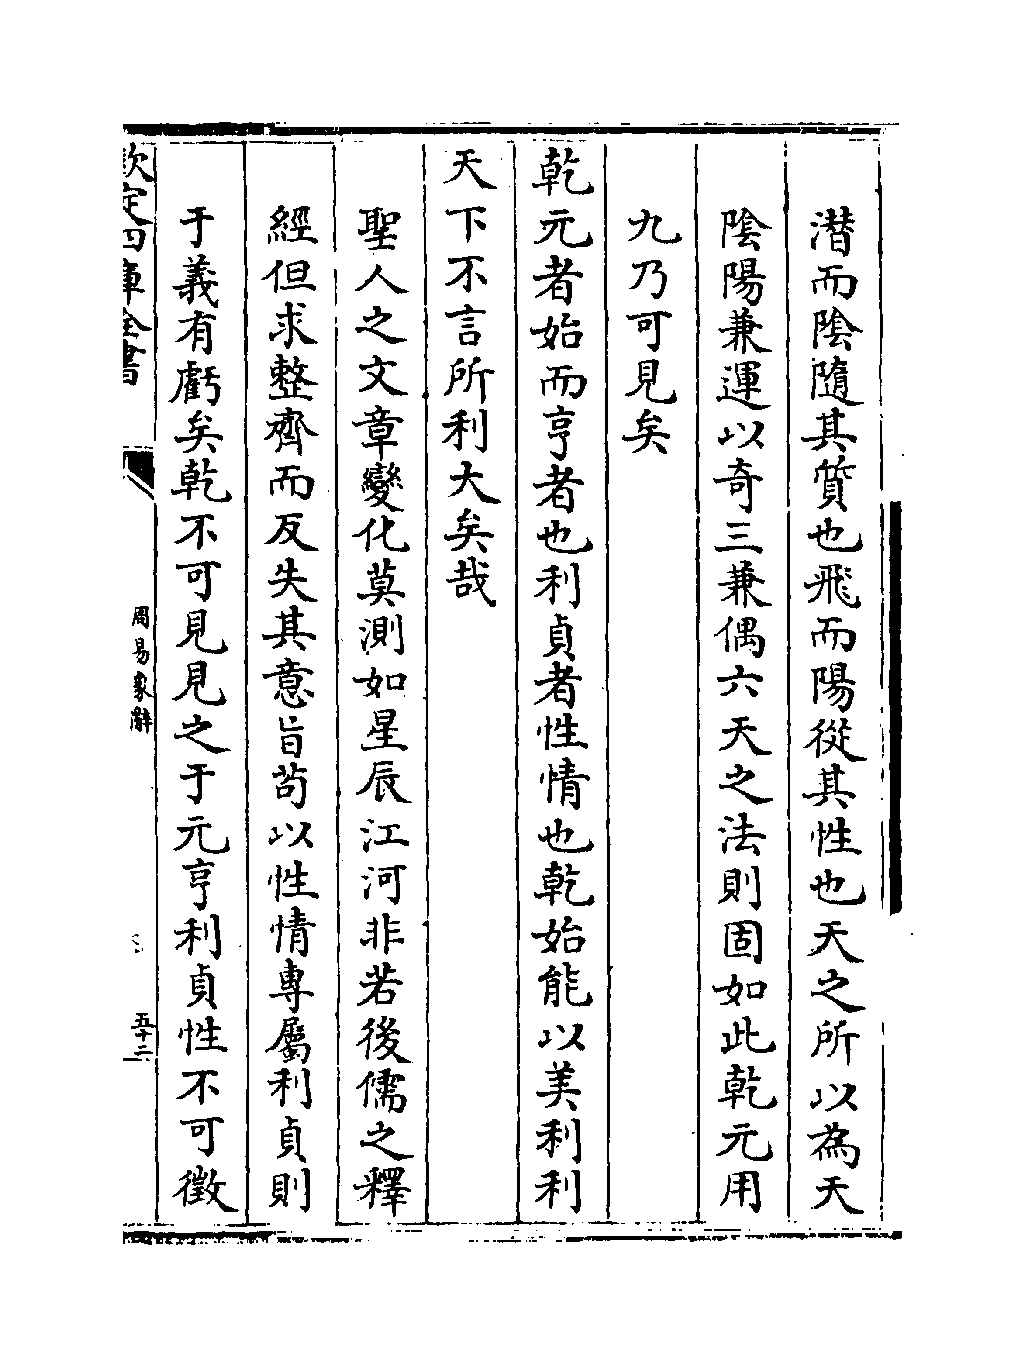 潜而陰隨其質也飛而陽從其性也天之所以為天
陰陽兼運以奇三兼偶六天之法則固如此乾元用
九乃可見矣
乾元者始而亨者也利貞者性情也乾始能以美利利
天下不言所利大矣哉
聖人之文章變化莫測如星辰江河非若後儒之釋
經但求整齊而反失其意旨茍以性情專屬利貞則
于義有虧矣乾不可見見之于元亨利貞性不可徵
欽定四庫全書
周易象辭
五十二